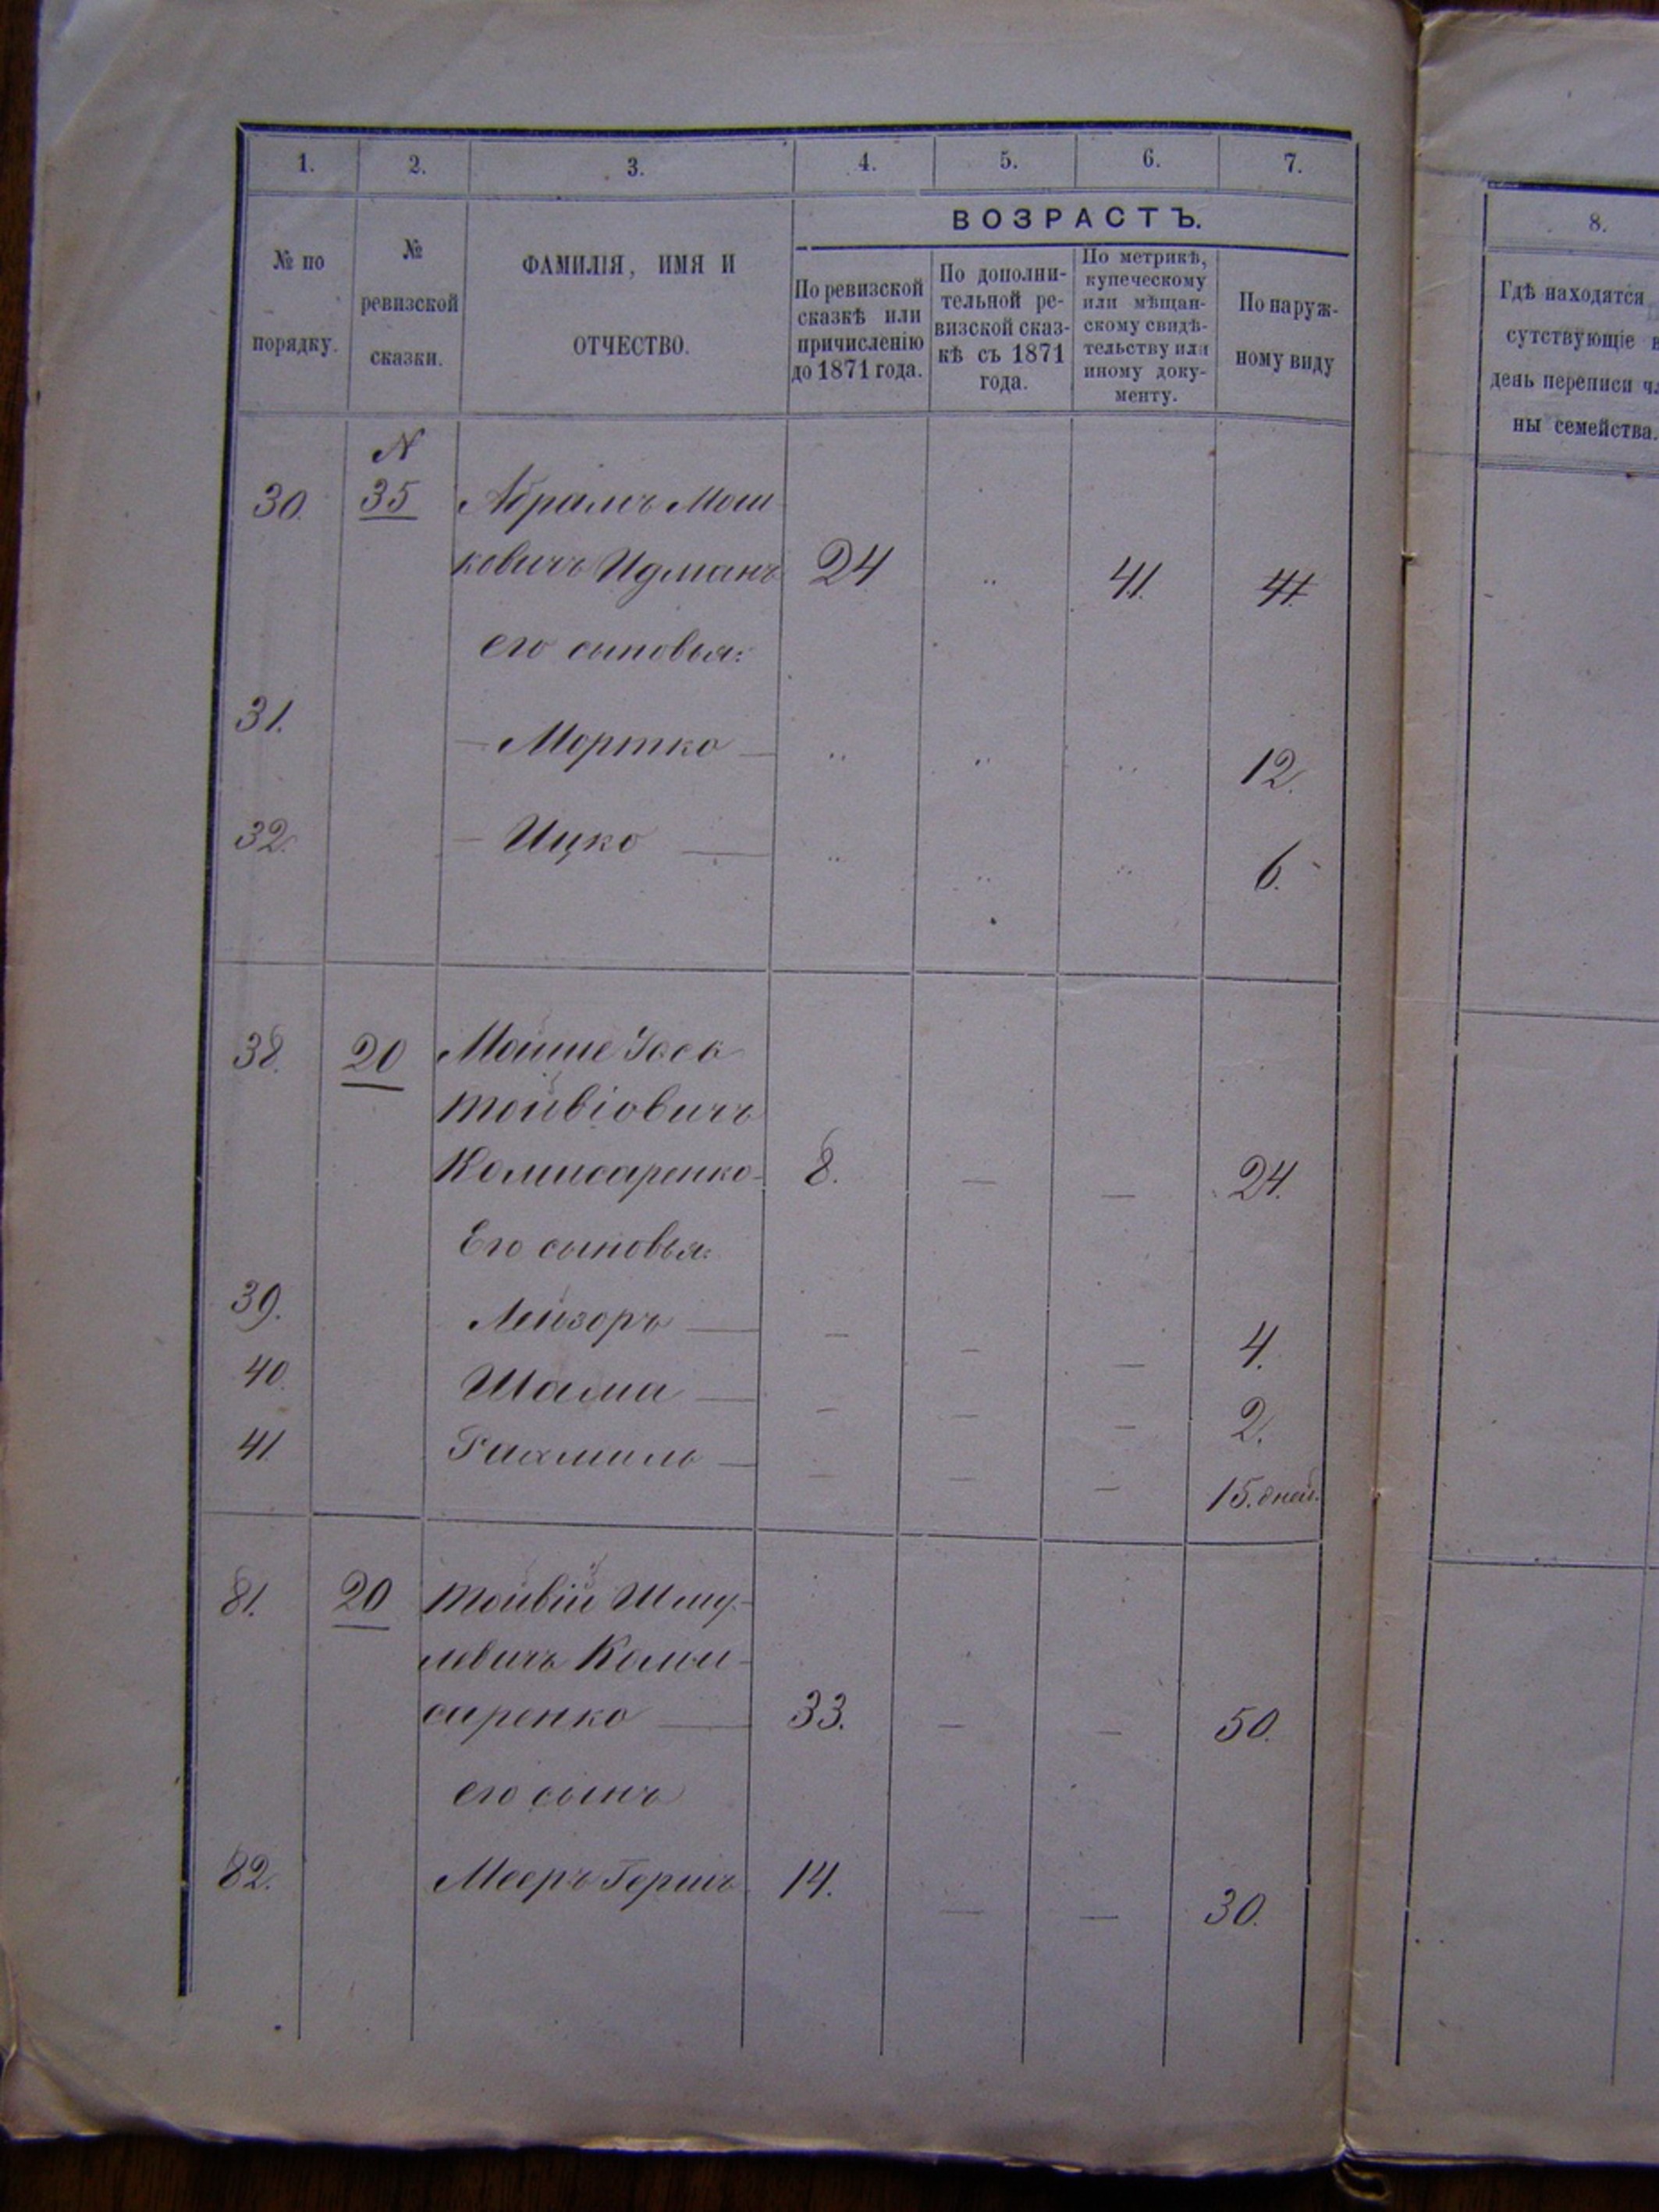 1. 2. 3. 4. 5. 6. 7.
№ по порядку.
№ ревизской сказки.
ФАМИЛІЯ, ИМЯ И
ОТЧЕСТВО.
ВОЗРАСТЪ.
По ревизской
сказкѣ или
причисленію
до 1871 года.
По дополни-
тельной ре-
визской сказ-
кѣ съ 1871
года.
По метрикѣ,
купеческому
или мѣщан-
скому свидѣ-
тельству или
иному доку-
менту.
По наруж-
ному виду
N
30. 35 Абрамъ Мош
ковичъ Идманъ 24 " 41. 41.
его сыновья:
31. — Мортко — " " " 12.
32. — Ицко — " " " 6.
38. 20 Мойше Іось
Тойвіовичъ
Комисаренко 8. — — 24.
Его сыновья:
39. Лейзоръ — — — — 4.
40. Шама — — — — 2.
41 Рахмиль — — — — 15. дней.
81. 20 Тойвій Шму-
левичъ Коми-
саренко — 33. — — 50.
его сынъ
82. Мееръ Гершъ 14. — — 30.
8.
Гдѣ находятся
сутствующіе в
день переписи чл
ны семейства.